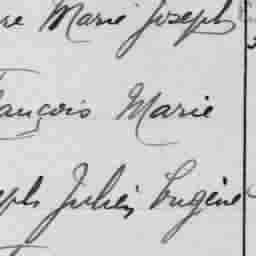 re Marie Joseph
ançois Marie
eph Julien Eugène